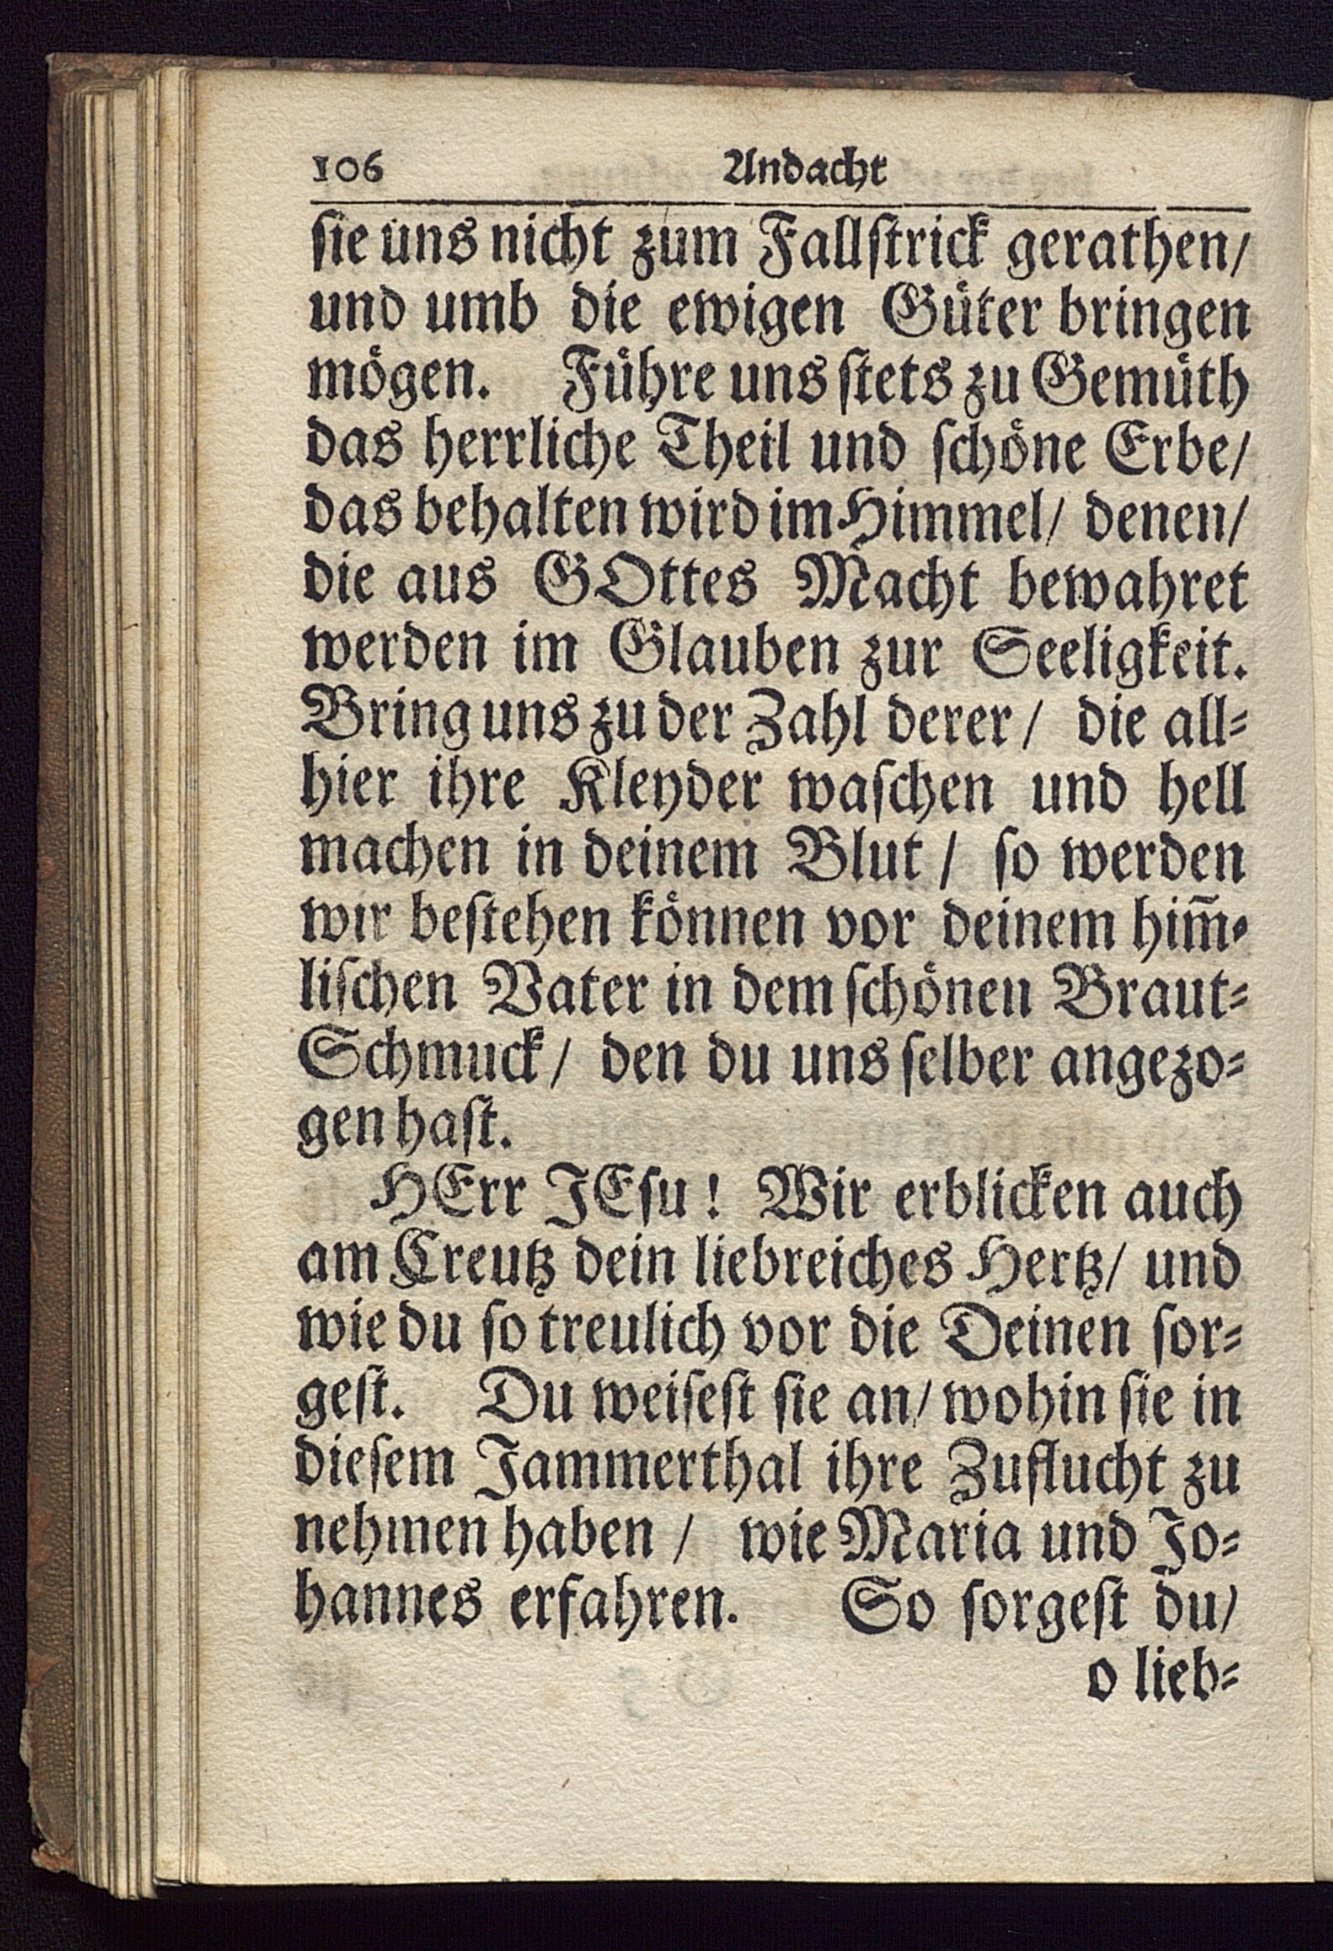 106 Andacht
ſie uns nicht zum Fallſtrick gerathen/
und umb die ewigen Guͤter bringen
moͤgen. Fuͤhre uns ſtets zu Gemuͤth
das herrliche Theil und ſchoͤne Erbe/
das behalten wird im Himmel/ denen/
die aus GOttes Macht bewahret
werden im Glauben zur Seeligkeit.
Bring uns zu der Zahl derer/ die all⸗
hier ihre Kleyder waſchen und hell
machen in deinem Blut/ ſo werden
wir beſtehen koͤnnen vor deinem him̃⸗
liſchen Vater in dem ſchoͤnen Braut⸗
Schmuck/ den du uns ſelber angezo⸗
gen haſt.
HErr JEſu! Wir erblicken auch
am Creutz dein liebreiches Hertz/ und
wie du ſo treulich vor die Deinen ſor⸗
geſt. Du weiſeſt ſie an/ wohin ſie in
dieſem Jammerthal ihre Zuflucht zu
nehmen haben/ wie Maria und Jo⸗
hannes erfahren. So ſorgeſt du/
o lieb⸗